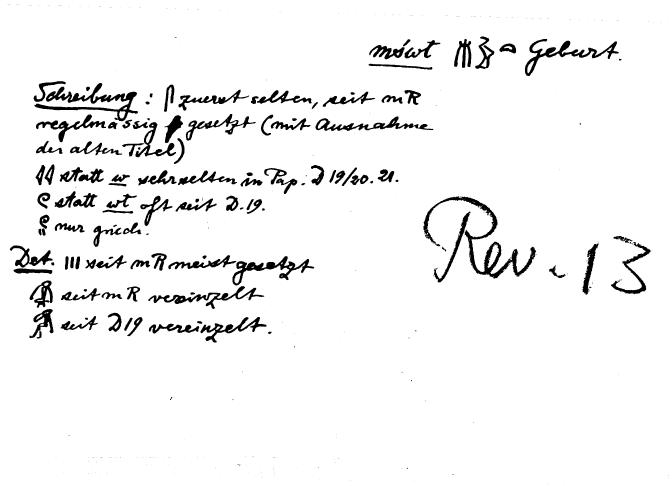 mśwt 𓄟𓅱𓏏 Geburt.
Schreibung: 𓋴 zuerst selten, seit mR
regelmässig gesetzt (mit Ausnahme
der alten Titel)
𓇌 statt w sehr selten in Pap. D 19/20. 21.
𓏲 statt wt oft seit D. 19.
nur griech.
Det. ııı seit mR meist gesetzt
seit mR vereinzelt
seit D 19 vereinzelt.
Rev. 13